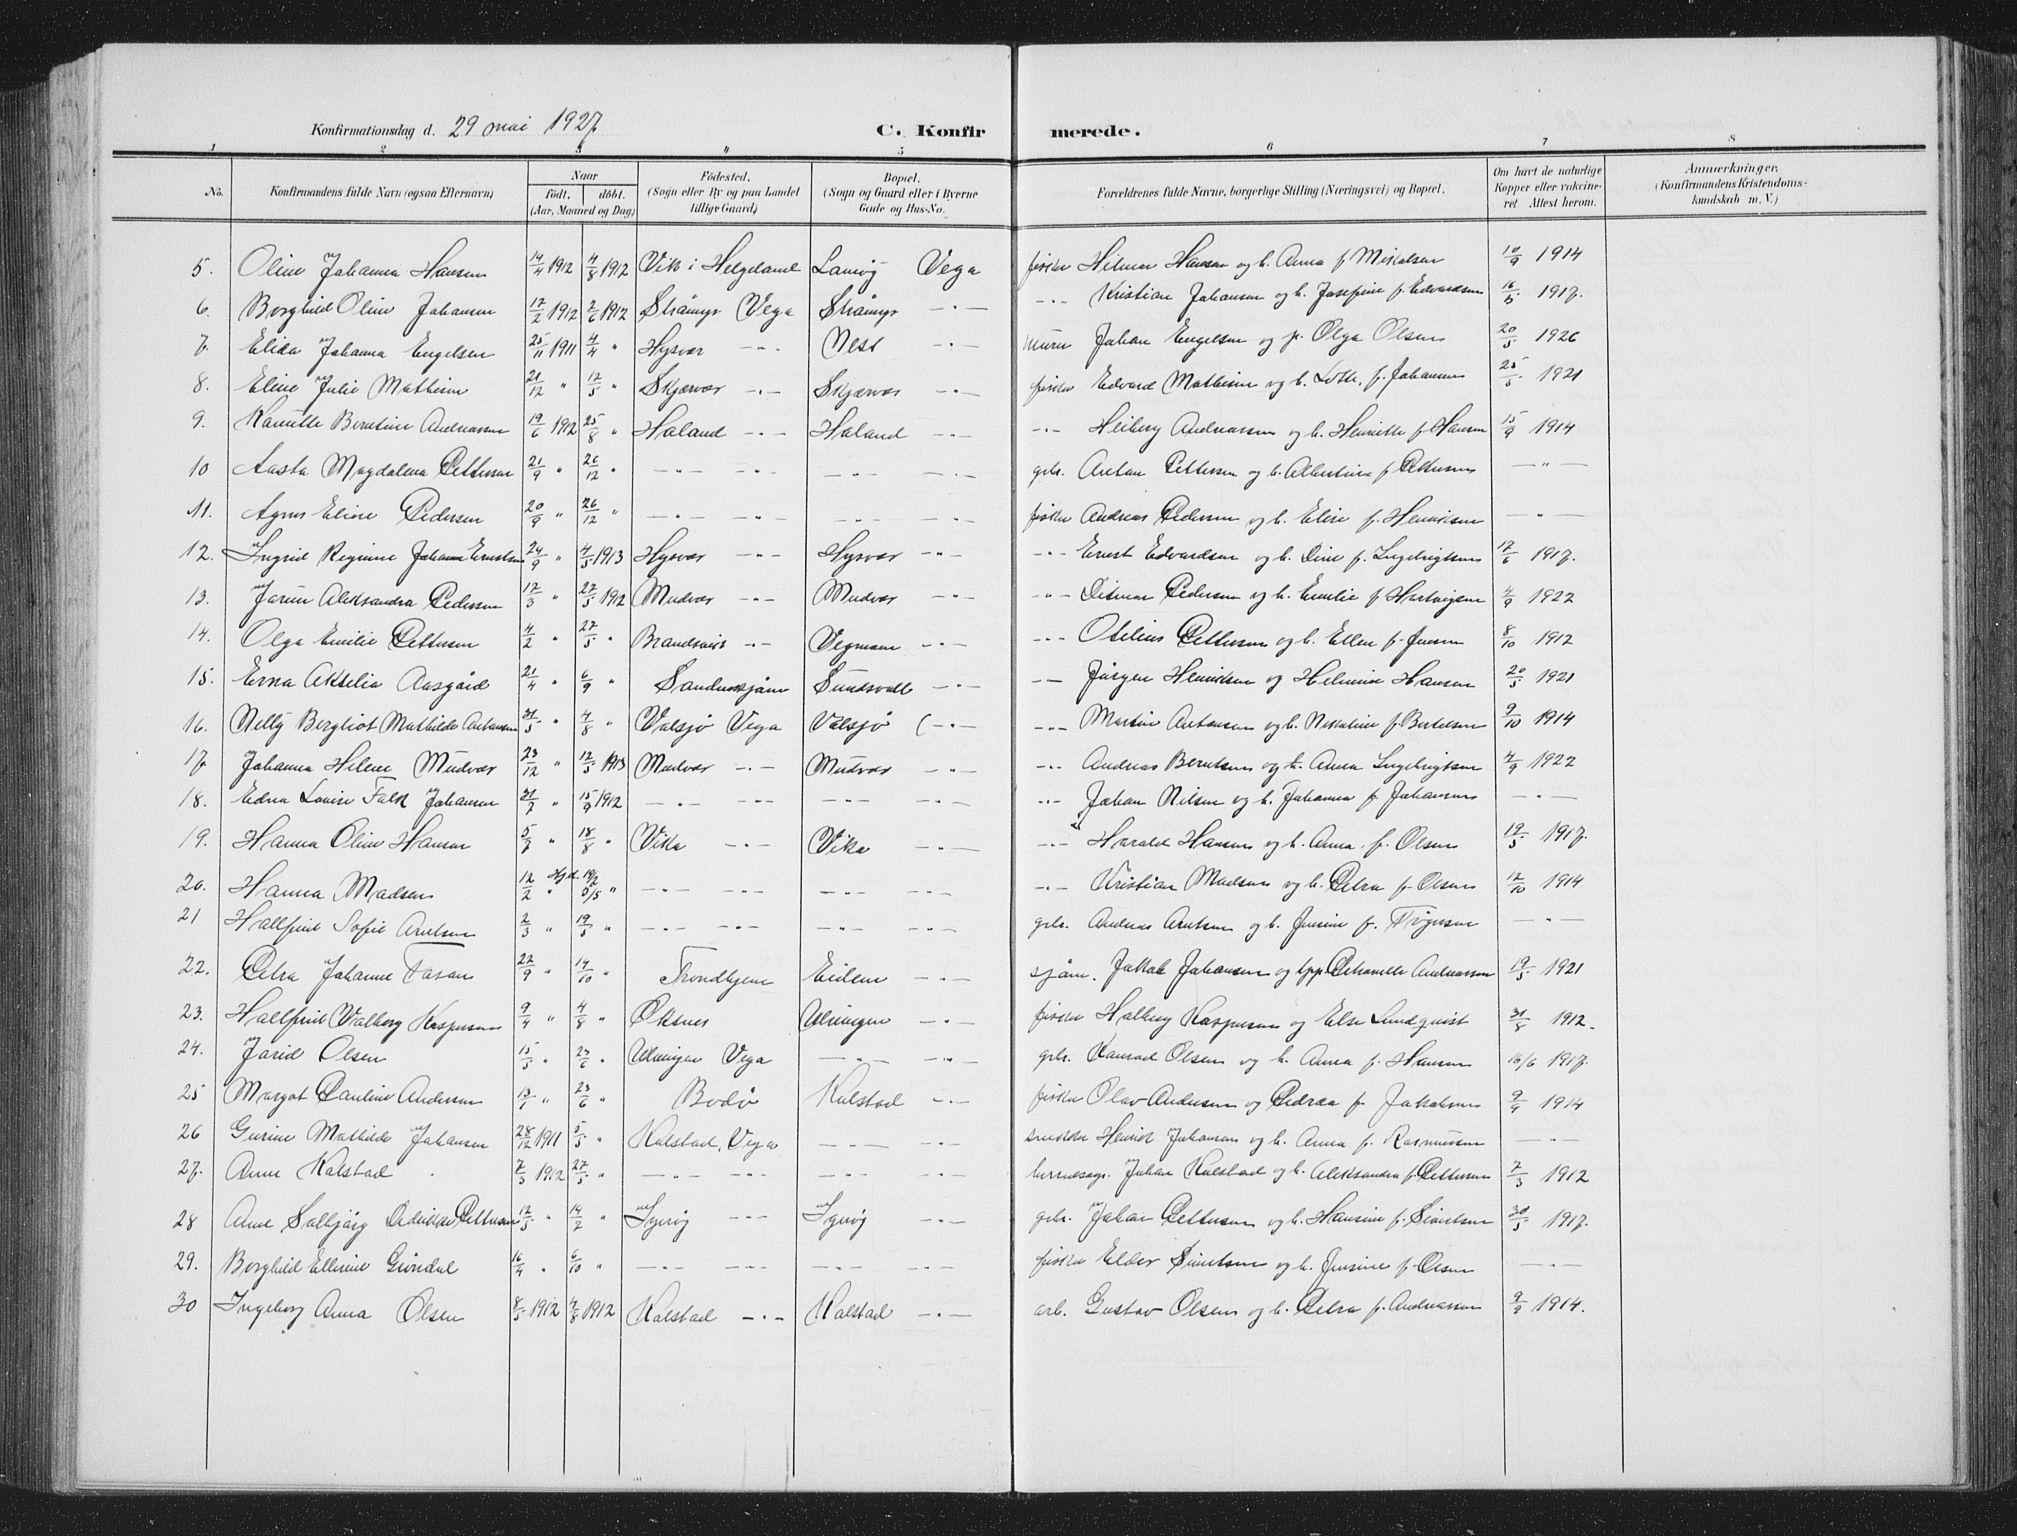 Konfirmationsdag d. 29 mai 1927 C. Konfirmerede.
1 2 3 4 5 6 7 8
No. Konfirmandens fulde Navn (ogsaa Efternavn) Naar født. døbt. (Aar, Maaned og Dag) Fødested. (Sogn eller By og paa Landet tillige Gaard) Bopæl. (Sogn og Gaard eller i Byerne Gade og Hus-No. Forældrenes fulde Navne, borgerlige Stilling (Næringsvei) og Bopæl. Om havt de naturlige Kopper eller vaccineret Attest herom. Anmærkninger. (Konfirmandens Kristendomskundskab m. V.)
5. Oline Johanna Hansen 14/4 1912 4/8 1912 Vik i Helgeland Vega fisker Hilmar Hansen og h. Anna f. Mikalsen 10/9 1914
6. Borghild Oline Johansen 17/2 1912 2/6 1912 Vega -"- -"- Kristian Johansen og h. Josefine f. Edvardsen 1917.
7. Elida Johanna Engelsen 25/11 1911 4/4 " Hysvær -"- Nest -"- murer Johan Engelsen og p. Olga Olsen 20/5 1926
8. Eline Julie Mathisen 21/12 " 12/5 " Skjærvær -"- Skjærvær -"- fisker Edvard Mathisen og h. Lotte f. Johansen 25/5 1921
9. Berntine Andreassen 19/6 1912 25/8 " Haland -"- Haland -"- -"- Heiberg Andreassen og h. Henriette f. Hansen 15/9 1914
10 Aasta Magdalena Pettersen 21/9 " 26/12 " -"- -"- -"- -"- grbr. Anton Pettersen og h. Albertine f. Pettersen -"-
11. Agnes Eline Pedersen 20/9 " 26/12 " -"- -"- -"- -"- fisker Andreas Pedersen og h. Elise f. Henriksen -"-
12. Ingrid Regine Johanna Ernstsen 24/9 " 4/5 1913 Hysvær -"- Hysvær -"- -"- Ernst Edvardsen og h. Dine f. Ingebrigtsen 17/6 1917.
13. Aleksandra Pedersen 17/3 " 27/5 1912 Mudvær -"- Mudvær -"- -"- Ditmar Pedersen og h. Emilie f. Hartvigsen 4/9 1922
14. Olga Emilie Pettersen 4/2 " 27/5 " -"- -"- -"- Otelius Pettersen og h. Ellen f. Jensen 8/10 1912
15. Erna Akselia Aasgård 21/4 " 6/9 " Sandnessjøen Sundsvoll -"- -"- Jørgen Henriksen og Helmine Hansen 20/5 1921
16. Nelly Bergliot Mathilde Antonsen 31/5 " 4/8 " Valsjø Vega Valsjø -"- -"- Martin Antonsen og h. Nikoline f. Bertelsen 9/10 1914
17. Johanna Helene Mudvær 23/12 " 12/5 1913 Mudvær -"- Mudvær -"- -"- Andreas Berntsen og h. Anna Ingebrigtsen 4/9 1922
18. Edna Lovise Falk Johansen 31/7 " 15/9 1912 -"- -"- -"- -"- -"- Johan Nilsen og h. Johanna f. Johansen -"-
19. Hanna Oline Hansen 5/7 " 18/8 " Vika -"- Vika -"- -"- Harald Hansen og h. Anna f. Olsen 19/5 1917.
20. Hanna Madsen 12/2 " Hjd. 19/2 5/5 " -"- -"- -"- -"- -"- Kristian Madsen og h. Petra f. Olsen 12/10 1914
21 Hallfrid Sofie Arntsen 2/3 " 19/5 " -"- -"- -"- -"- grbr. Andreas Arntsen og h. Jensine f. -"-
22. Petra Johanne Fasan 22/9 " 14/10 " Trondhjem Eidem -"- sjøm. Jakob Johansen og Petronelle Andreassen 19/5 1921
23. Hallfrid Valborg Kaspersen 9/4 " 4/8 " Øksnes Ulvingen -"- fisker Halberg Kaspersen og Else Lundqvist 31/8 1912.
24. Jorid Olsen 15/5 " 23/6 " Ulvingen Vega -"- -"- grbr. Konrad Olsen og h. Anna f. Hansen 16/6 1917.
25 Margot Pauline Andersen 23/6 " Bodø Kalstad -"- fisker Olav Andersen og Pedræa f. Jakobsen 9/9 1914
26 Gurine Mathilde Johansen 28/12 1911 5/5 " Kalstad, Vega -"- -"- Henrik Johansen og h. Anna f. Rasmussen -"-
27. Anne Kalstad 7/3 1912 27/5 " -"- -"- -"- -"- Johan Kalstad og h. Aleksandra f. Pettersen 7/5 1912
28 Anne Solbjørg Pettersen 12/5 " 14/2 " Igerøy -"- Igerøy -"- grbr. Johan Pettersen og h. Hansine f. Sivertsen 30/5 1917.
29. Borghild Elline Grøndal 16/4 " 6/10 " -"- -"- -"- -"- fisker Sivertsen og h. Jensine f. Olsen -"-
30 Ingeborg Anna Olsen 8/5 1912 4/8 1912 Kalstad -"- Kalstad -"- arb. Gustav Olsen og h. Petra f. Andreassen 9/9 1914.